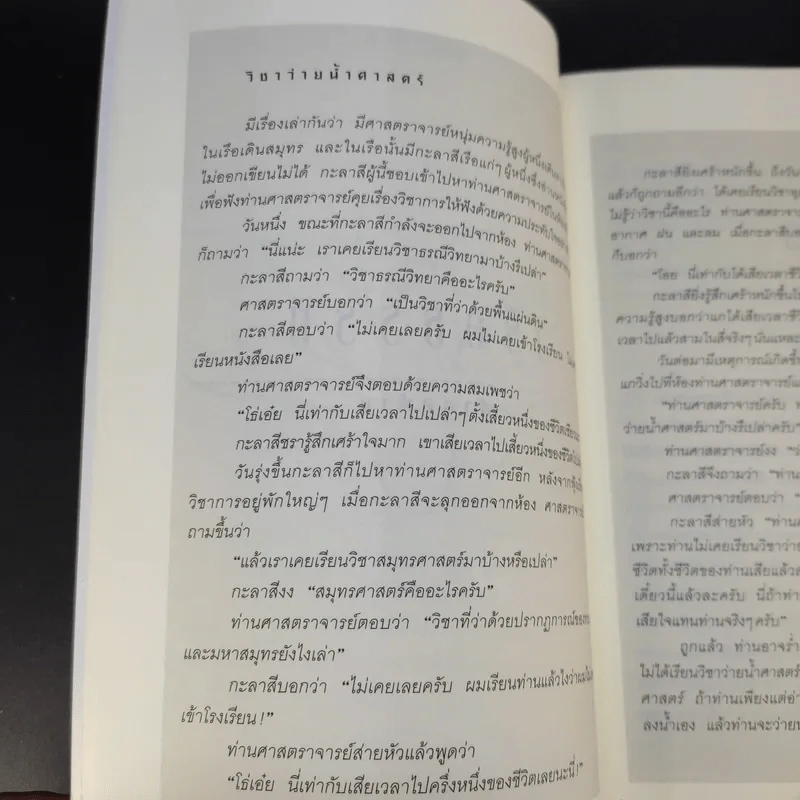 วิชาว่ายน้ำศาสตร์
มีเรื่องเล่ากันว่า มีศาสตราจารย์หนุ่มความรู้สูงผู้หนึ่งเดินทาง
ในเรือเดินสมุทร และในเรือนั้นมีกะลาสีเรือแก่ๆ ผู้หนึ่งซึ่งอ่านหนังสือ
ไม่ออกเขียนไม่ได้ กะลาสีผู้นี้ชอบเข้าไปหาท่านศาสตราจารย์ในห้อง
เพื่อฟังท่านศาสตราจารย์คุยเรื่องวิชาการให้ฟังด้วยความประทับใจ
วันหนึ่ง ขณะที่กะลาสีกำลังจะออกไปจากห้อง ท่านศาสตราจารย์
ก็ถามว่า “นี่แน่ะ เราเคยเรียนวิชาธรณีวิทยามาบ้างรึเปล่า”
กะลาสีถามว่า “วิชาธรณีวิทยาคืออะไรครับ”
ศาสตราจารย์บอกว่า “เป็นวิชาที่ว่าด้วยพื้นแผ่นดิน”
กะลาสีตอบว่า “ไม่เคยเลยครับ ผมไม่เคยเข้าโรงเรียน
เรียนหนังสือเลย”
ท่านศาสตราจารย์จึงตอบด้วยความสมเพชว่า
“โธ่เอ๋ย นี่เท่ากับเสียเวลาไปเปล่าๆ ตั้งเสี้ยวหนึ่งของชีวิต
กะลาสีชรารู้สึกเศร้าใจมาก เขาเสียเวลาไปเสี้ยวหนึ่งของชีวิต
วันรุ่งขึ้นกะลาสีก็ไปหาท่านศาสตราจารย์อีก หลังจาก
วิชาการอยู่พักใหญ่ๆ เมื่อกะลาสีจะลุกออกจากห้อง ศาสตราจารย์
ถามขึ้นว่า
“แล้วเราเคยเรียนวิชาสมุทรศาสตร์มาบ้างหรือเปล่า”
กะลาสีงง “สมุทรศาสตร์คืออะไรครับ”
ท่านศาสตราจารย์ตอบว่า “วิชาที่ว่าด้วยปรากฏการณ์ของ
และมหาสมุทรยังไงเล่า”
กะลาสีบอกว่า “ไม่เคยเลยครับ ผมเรียนท่านแล้วไงว่าผมไม่
เข้าโรงเรียน!”
ท่านศาสตราจารย์ส่ายหัวแล้วพูดว่า
“โธ่เอ๋ย นี่เท่ากับเสียเวลาไปครึ่งหนึ่งของชีวิตเลยนะนี่!”
กะลาสียิ่งเศร้าหนักขึ้น ถึงวัน
แล้วก็ถูกถามอีกว่า ได้เคยเรียนวิชา
ไม่รู้ว่าวิชานี้คืออะไร ท่านศาสตราจาร
อากาศ ฝน และลม เมื่อกะลาสีบอ
ก็บอกว่า
“โอย นี่เท่ากับได้เสียเวลาชีวิ
กะลาสียิ่งรู้สึกเศร้าหนักขึ้นไป
ความรู้สูงบอกว่าแกได้เสียเวลาชีวิ
เวลาไปแล้วสามในสี่จริงๆ นั่นแหละ
วันต่อมามีเหตุการณ์เกิดขึ้
แกวิ่งไปที่ห้องท่านศาสตราจารย์แ
“ท่านศาสตราจารย์ครับ ท
ว่ายน้ำศาสตร์มาบ้างรึเปล่าครับ”
ท่านศาสตราจารย์งง “ว
กะลาสีจึงถามว่า “ท่าน
ศาสตราจารย์ตอบว่า “
กะลาสีส่ายหัว “ท่าน
เพราะท่านไม่เคยเรียนวิชาว่าย
ชีวิตทั้งชีวิตของท่านเสียแล้วล
เดี๋ยวนี้แล้วละครับ นี่ถ้าท่า
เสียใจแทนท่านจริงๆ ครับ”
ถูกแล้ว ท่านอาจร่ำ
ไม่ได้เรียนวิชาว่ายน้ำศาสตร์
ศาสตร์ ถ้าท่านเพียงแต่อ่า
ลงน้ำเอง แล้วท่านจะว่ายน